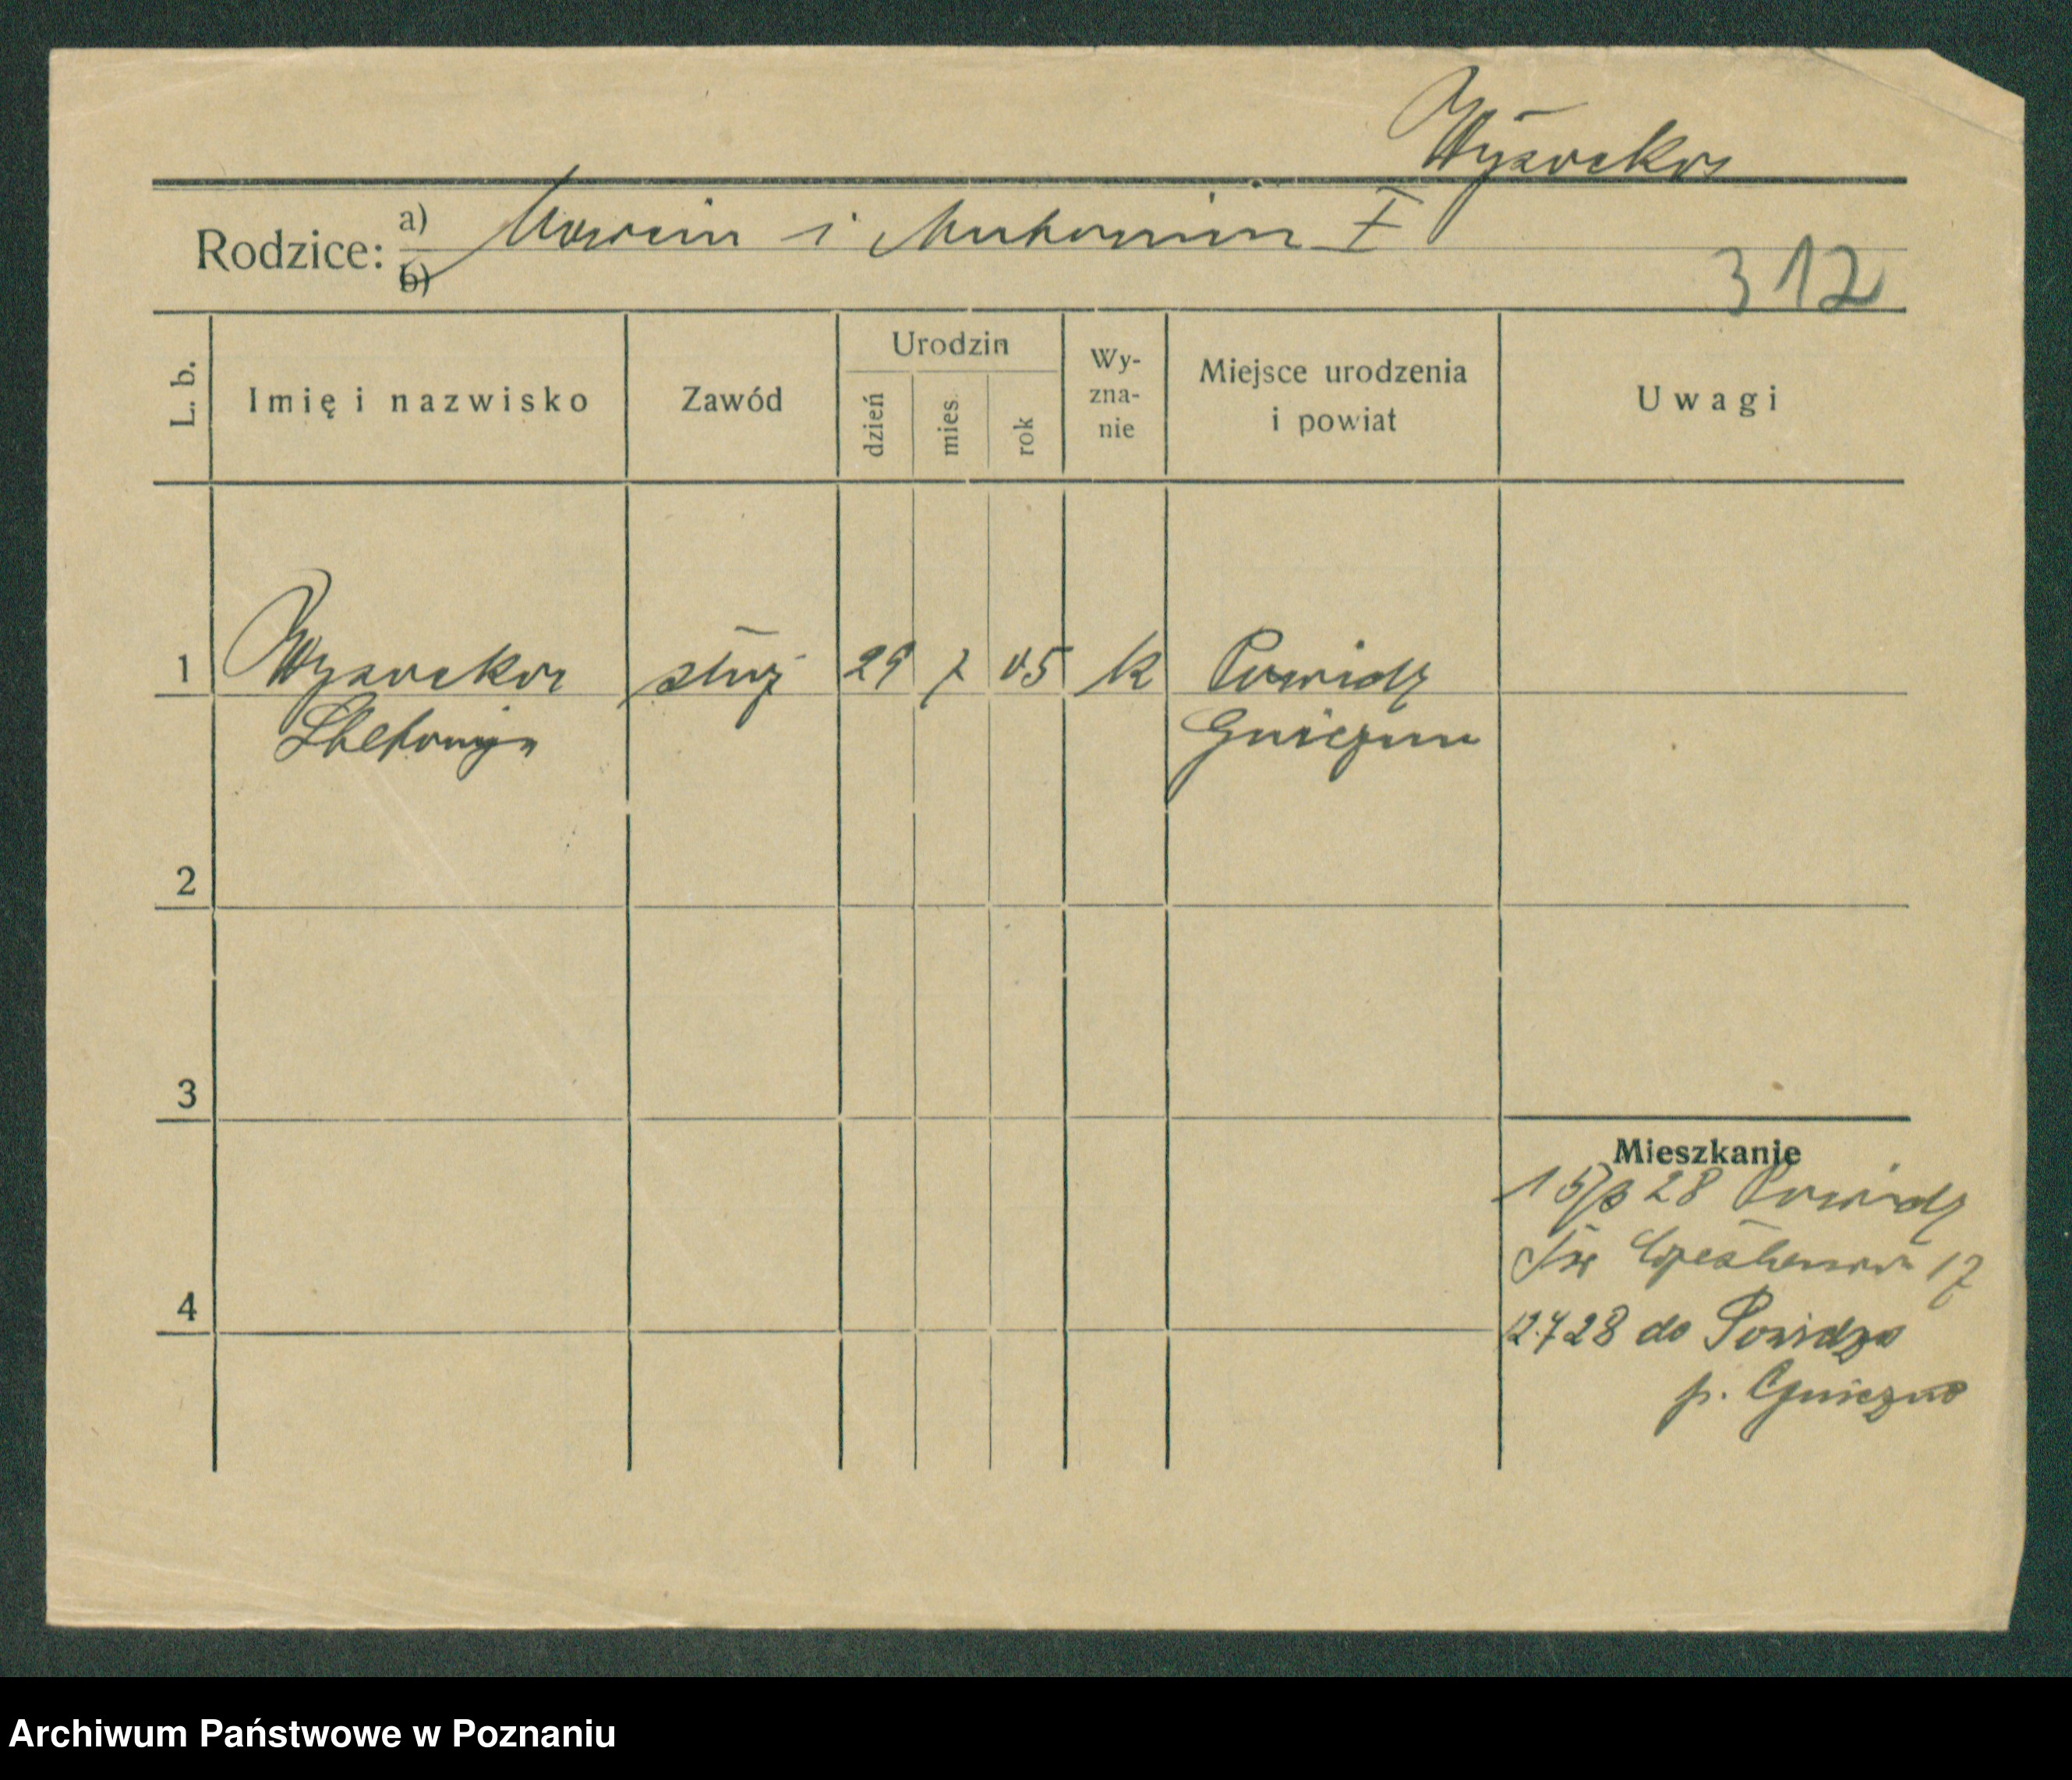 Wysocka
Rodzice: a) Marcin i Antonina
b)
312
L. b.
Imię i nazwisko
Zawód
Urodzin
dzień
mies.
rok
Wy-
zna-
nie
Miejsce urodzenia
i powiat
Uwagi
1 Wysocka służ 29 7 05 k Powidz
Gniezno
2
3
Mieszkanie
28 Powidz
17
4
12.7 28 do Powidza
p. Gniezno
Archiwum Państwowe w Poznaniu